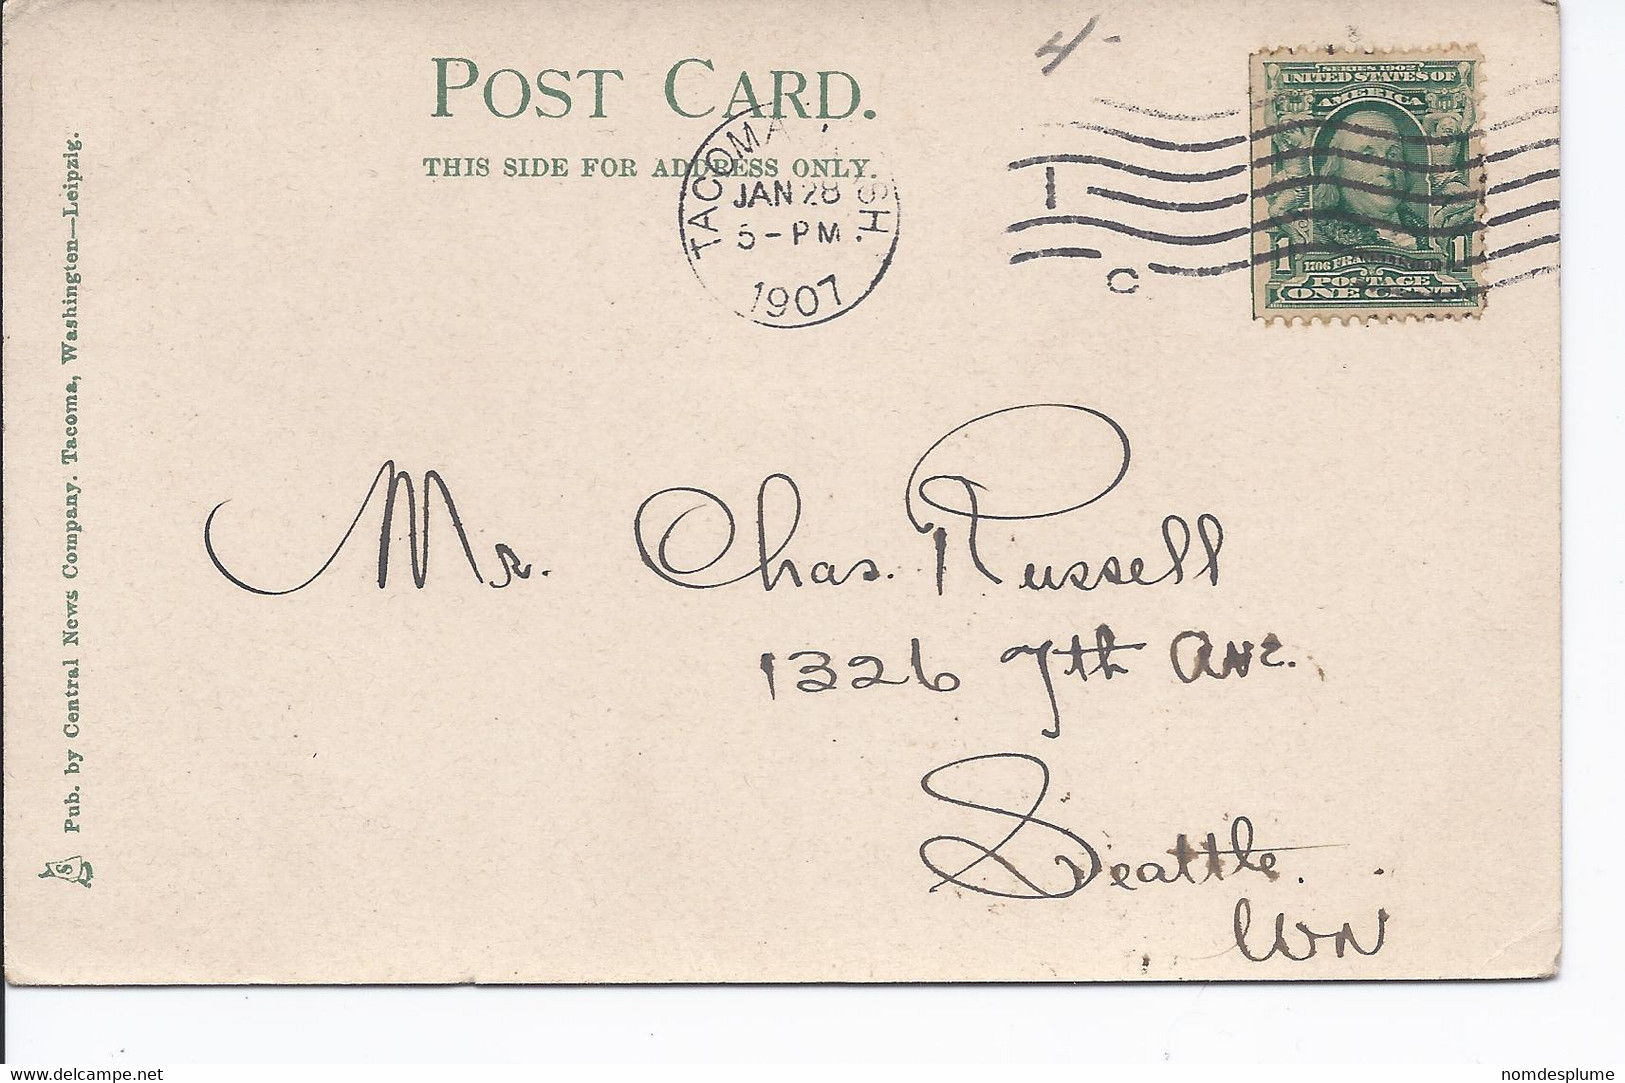 4-
POST CARD.
THIS SIDE FOR ADDRESS ONLY.
TACOMA
WASH
JAN 28
5-PM.
1907
1
C
SERIES 1902
UNITED STATES OF
AMERICA
1 1
1706 FRANKLIN 1790
POSTAGE
ONE CENT
Mr. Chas. Russell
1326 7th Ave.
Seattle.
WN
Pub. by Central News Company. Tacoma, Washington—Leipzig.
S
delcampe.net
nomdesplume